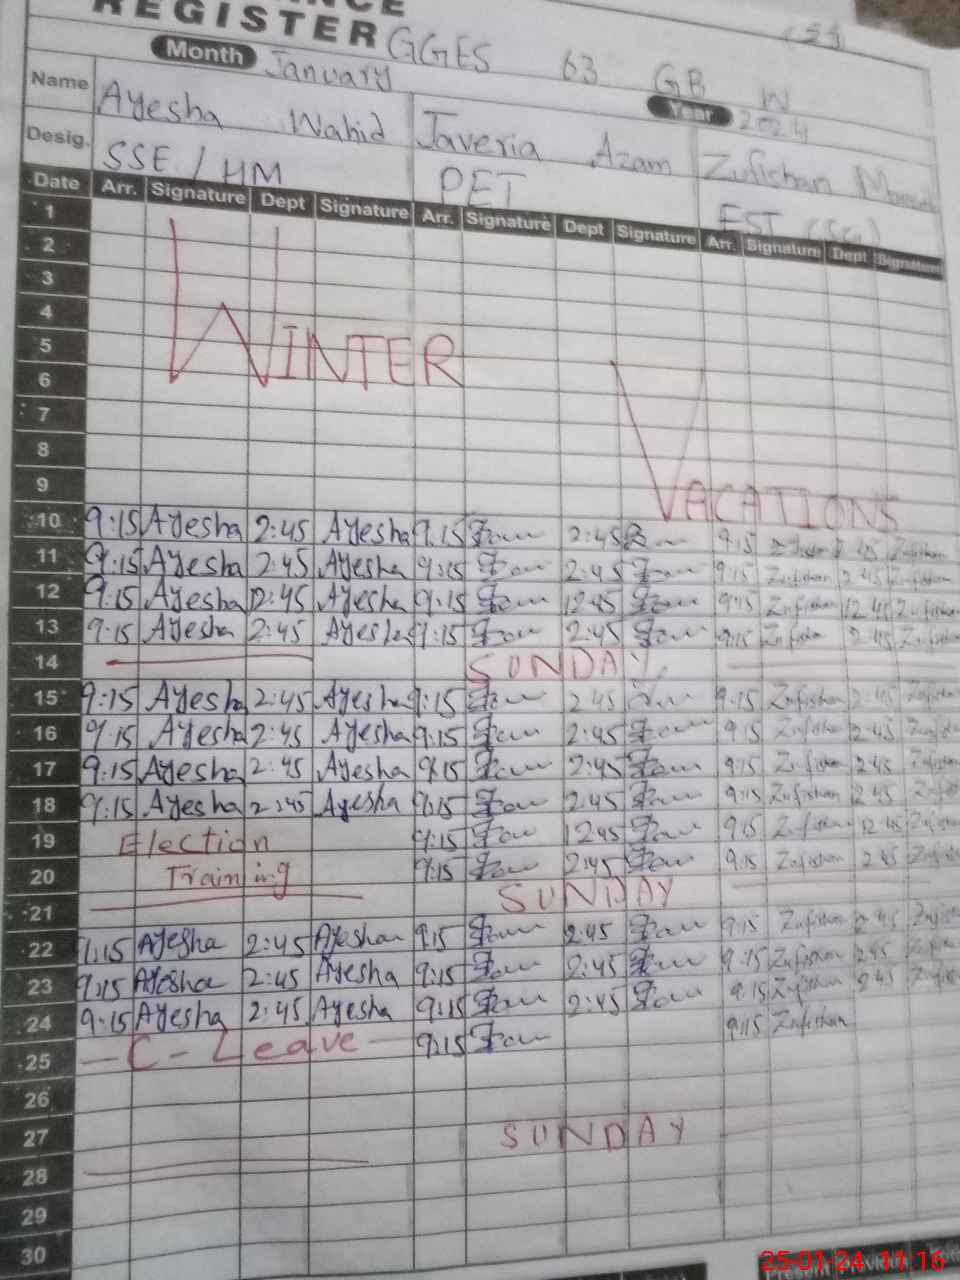 REGISTER GGES 63 GB W
Month January Year 2024
Name Ayesha Wahid Javeria Azam Zufishan
Desig. SSE / HM PET EST (SG)
Date Arr. Signature Dept Signature Arr. Signature Dept Signature Arr. Signature Dept Signature
1
2
3
4
5
WINTER
6
7
8
9
VACATIONS
10 9:15 Ayesha 2:45 Ayesha 9:15 2:45 9:15 2:45 Zufishan
11 9:15 Ayesha 2:45 Ayesha 9:15 2:45 9:15 Zufishan 2:45 Zufishan
12 9:15 Ayesha 12:45 Ayesha 9:15 12:45 9:15 Zufishan 12:45 Zufishan
13 9:15 Ayesha 2:45 Ayesha 9:15 2:45 9:15 Zufishan 2:45 Zufishan
14 SUNDAY
15 9:15 Ayesha 2:45 Ayesha 9:15 2:45 9:15 Zufishan 2:45
16 9:15 Ayesha 2:45 Ayesha 9:15 2:45 9:15 Zufishan 2:45
17 9:15 Ayesha 2:45 Ayesha 9:15 2:45 9:15 Zufishan 2:45
18 9:15 Ayesha 2:45 Ayesha 9:15 2:45 9:15 Zufishan 2:45
19 Election 9:15 12:45 9:15 Zufishan 12:45
20 Training 9:15 2:45 9:15 Zufishan 2:45
21 SUNDAY
22 9:15 Ayesha 2:45 Ayesha 9:15 2:45 9:15 Zufishan 2:45
23 9:15 Ayesha 2:45 Ayesha 9:15 2:45 9:15 Zufishan 2:45
24 9:15 Ayesha 2:45 Ayesha 9:15 2:45 9:15 Zufishan 2:45
25 - C - Leave - 9:15 9:15 Zufishan
26
27
28 SUNDAY
29
30
25-01-24 11 16
Present